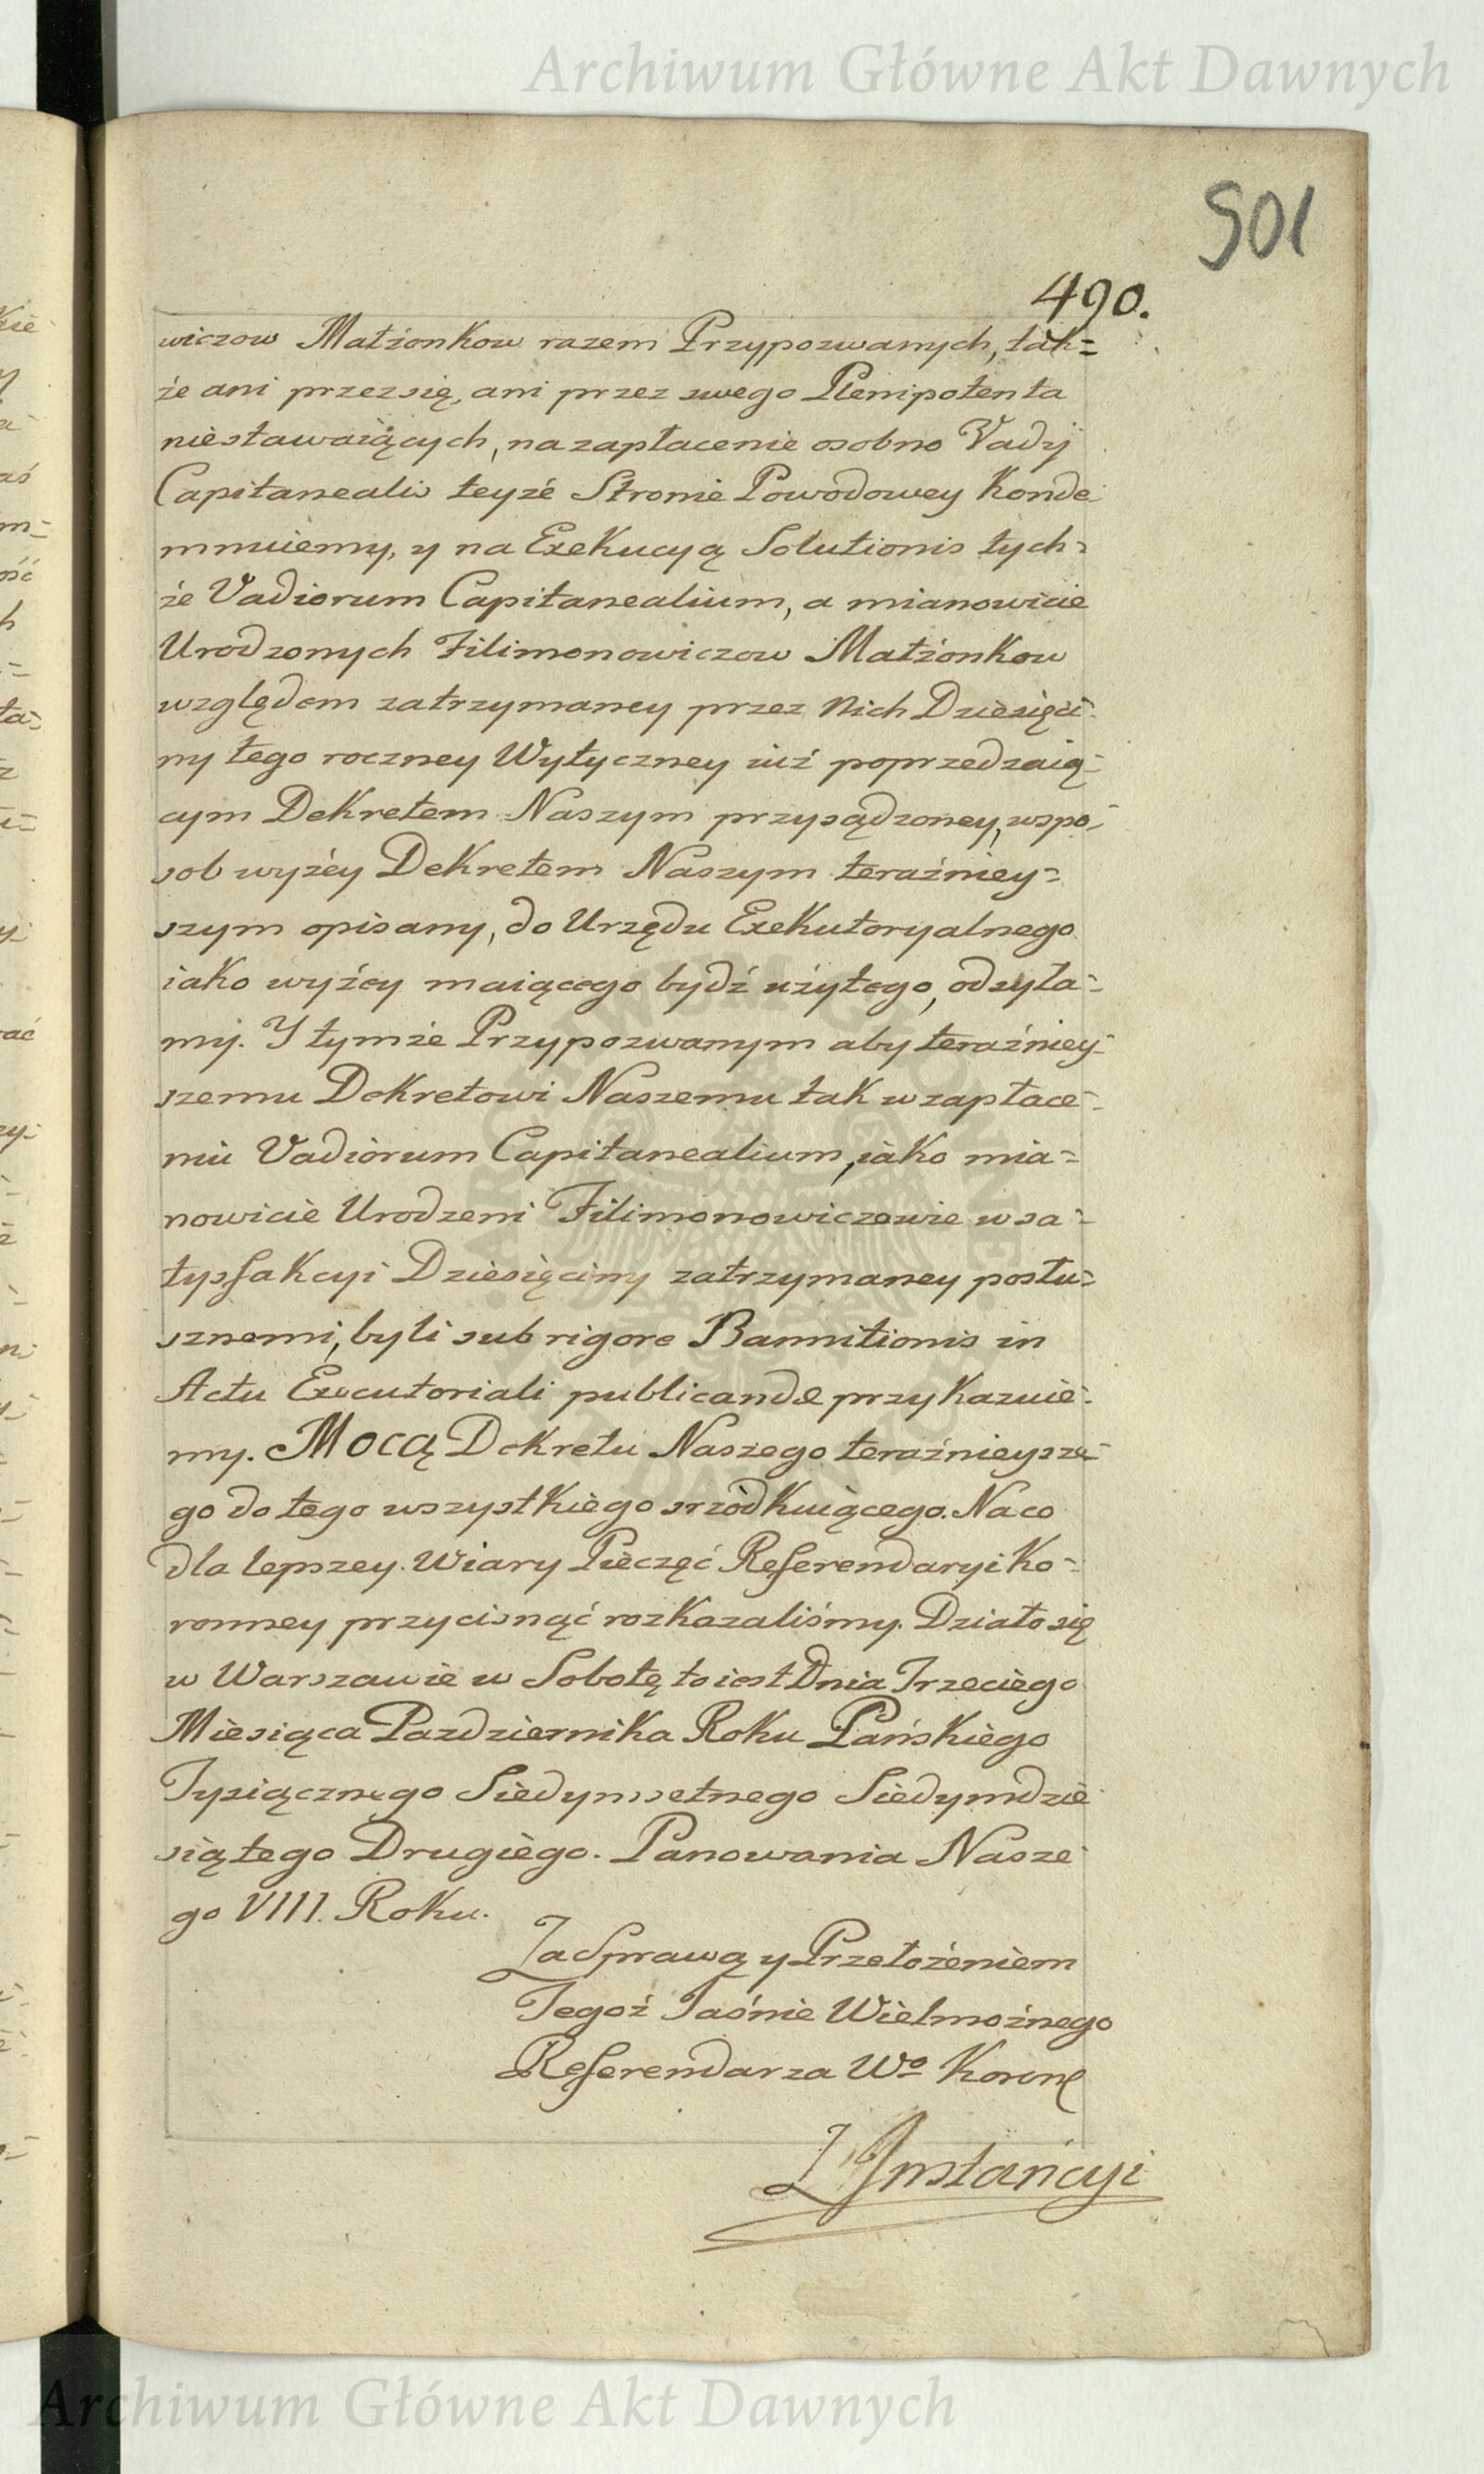 Archiwum Główne Akt Dawnych
501
490.
wiczow Małżonkow razem Przypozwanych, tak=
że ani przez się, ani przez swego Plenipotenta
niestawaiących, na zapłacenie osobno Vadij
Capitanealis teyże Stronie Powodowey Konde
mnuiemy, y na Exekucyą Solutionis tych=
że Vadiorum Capitanealium, a mianowicie
Urodzonych Filimonowiczow Małżonkow
względem zatrzymaney przez Nich Dziesięci=
ny tego roczney Wytyczney iuż poprzedzaią=
cym Dekretem Naszym przysądzoney, wspo=
sob wyżey Dekretem Naszym teraźniey=
szym opisany, do Urzędu Exekutoryalnego
iako wyżey maiącego bydź użytego, odsyła=
my. Y tymże Przypozwanym aby teraźniey=
szemu Dekretowi Naszemu tak w zapłace=
niu Vadiorum Capitanealium, iako mia=
nowicie Urodzeni Filimonowiczowie w sa=
tysfakcyi Dziesięciny zatrzymaney posłu=
sznemi, byli sub rigore Bannitionis in
Actu Executoriali publicandæ przykazuie=
my. Mocą Dekretu Naszego teraźnieysze=
go do tego wszystkiego srzodkuiącego. Na co
dla lepszey Wiary Pieczęć Referendaryi Ko=
ronney przycisnąć rozkazaliśmy. Działo się
w Warszawie w Sobotę to iest Dnia Trzeciego
Miesiąca Pazdziernika Roku Pańskiego
Tysiącznego Siedymsetnego Siedymdzie
siątego Drugiego. Panowania Nasze
go VIII. Roku.
Za Sprawą y Przełożeniem
Tegoż Jaśnie Wielmożnego
Referendarza Wo Koronne
Z Instancyi
Archiwum Główne Akt Dawnych